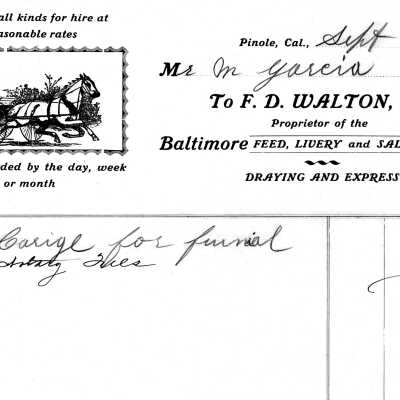 all kinds for hire at
asonable rates
ded by the day, week
or month
Pinole, Cal., Sept
Mr M Garcia
To F. D. WALTON,
Proprietor of the
Baltimore FEED, LIVERY and SAL
DRAYING AND EXPRESS
Carige for funiel